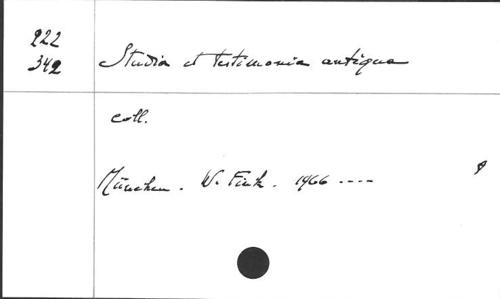 222
342 Studia et testimonia antiqua
coll.
München. W. Fink. 1966 ----